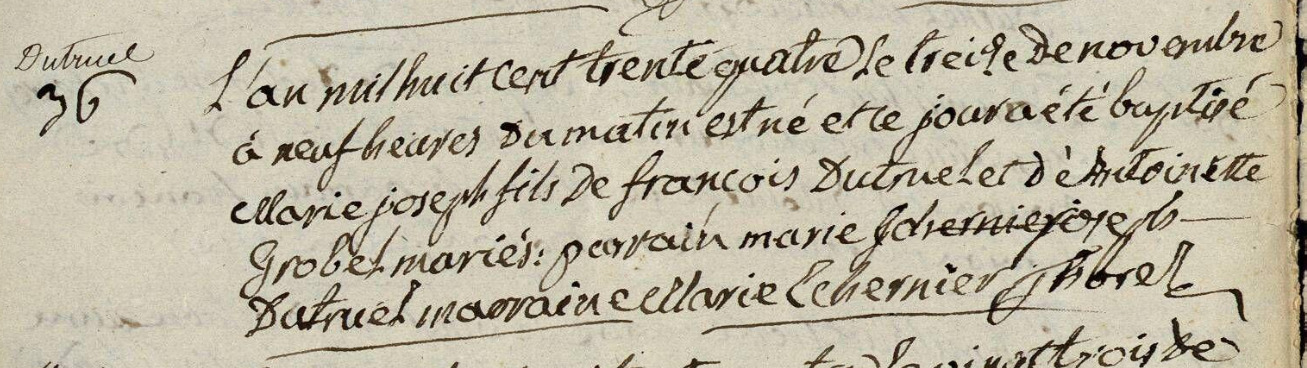 Dutruel
36
L'an mil huit cent trente quatre Le treize De novembre
à neuf heures Du matin est né et ce jour a été baptisé
Marie joseph fils De françois Dutruel et d'è Antoinette
Grobel mariés: parrain marie joseph
Dutruel marraine Marie Echernier Thorel
Le vingt trois De